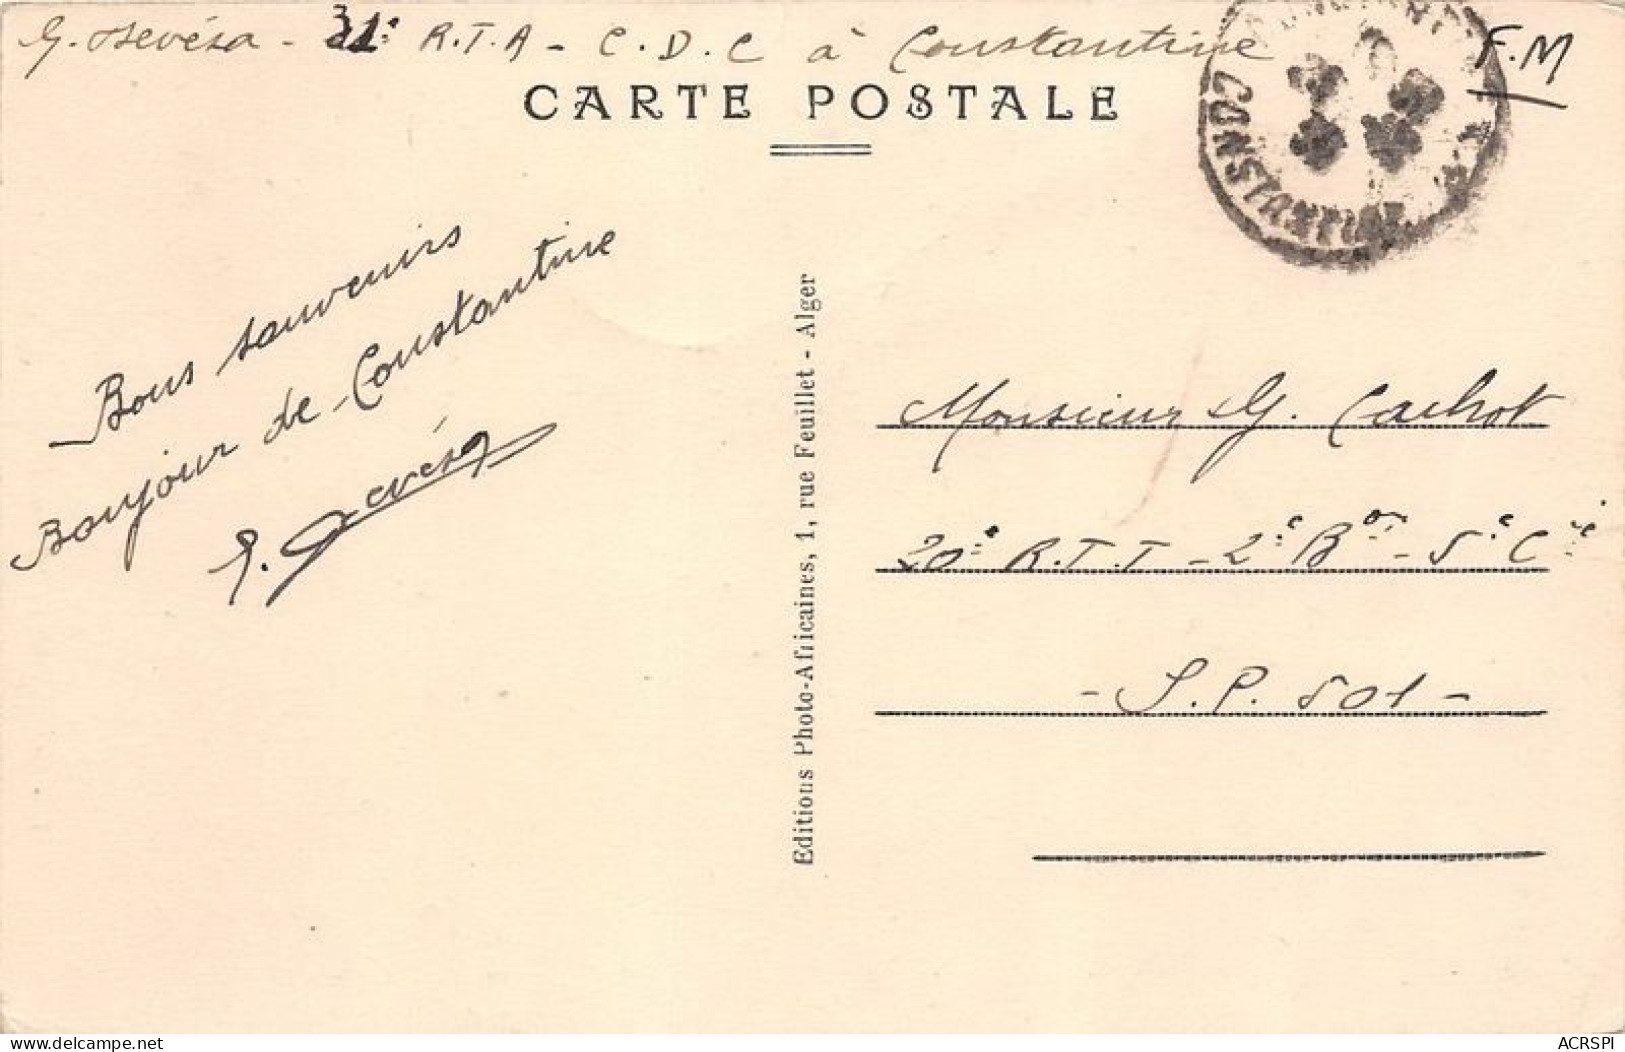 G. Osevésa - 31e R.T.A - C.D.C à Constantine
F.M
CARTE POSTALE
CONSTANTINE
Bons souvenirs
Bonjour de Constantine
Editions Photo-Africaines, 1, rue Feuillet - Alger
Monsieur G. Cachot
20e R.T.T - 2e Bon - 5e Cie
- S.P. 501 -
delcampe.net
ACRSPI